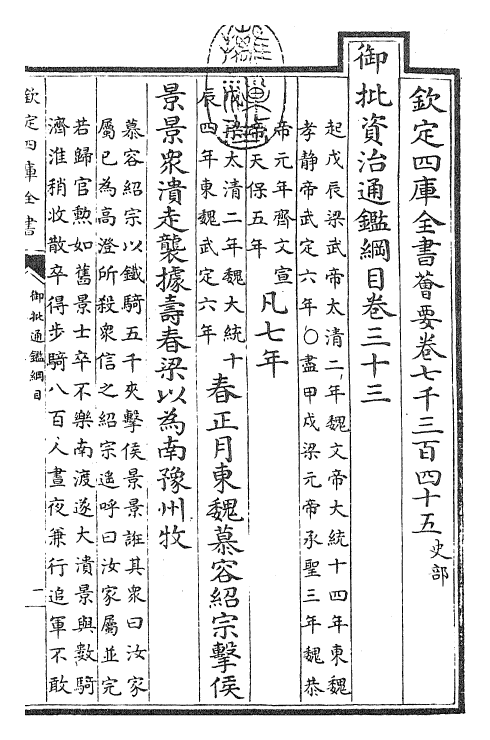 欽定四庫全書薈要卷七千三百四十五史部
御批資治通鑑綱目卷三十三
起戊辰梁武帝太清二年魏文帝大統十四年東魏
孝静帝武定六年○盡甲戌梁元帝承聖三年魏恭
帝元年齊文宣
帝天保五年
凡七年
戊辰太清二年魏大統十
四年東魏武定六年
春正月東魏慕容紹宗擊侯
景景衆潰走襲據壽春梁以為南豫州牧
慕容紹宗以鐵騎五千夾擊侯景景誑其衆曰汝家
屬已為高澄所殺衆信之紹宗遙呼曰汝家屬並完
若歸官勲如舊景士卒不樂南渡遂大潰景與數騎
濟淮稍收散卒得步騎八百人晝夜兼行追軍不敢
欽定四庫全書
御批通鑑綱目